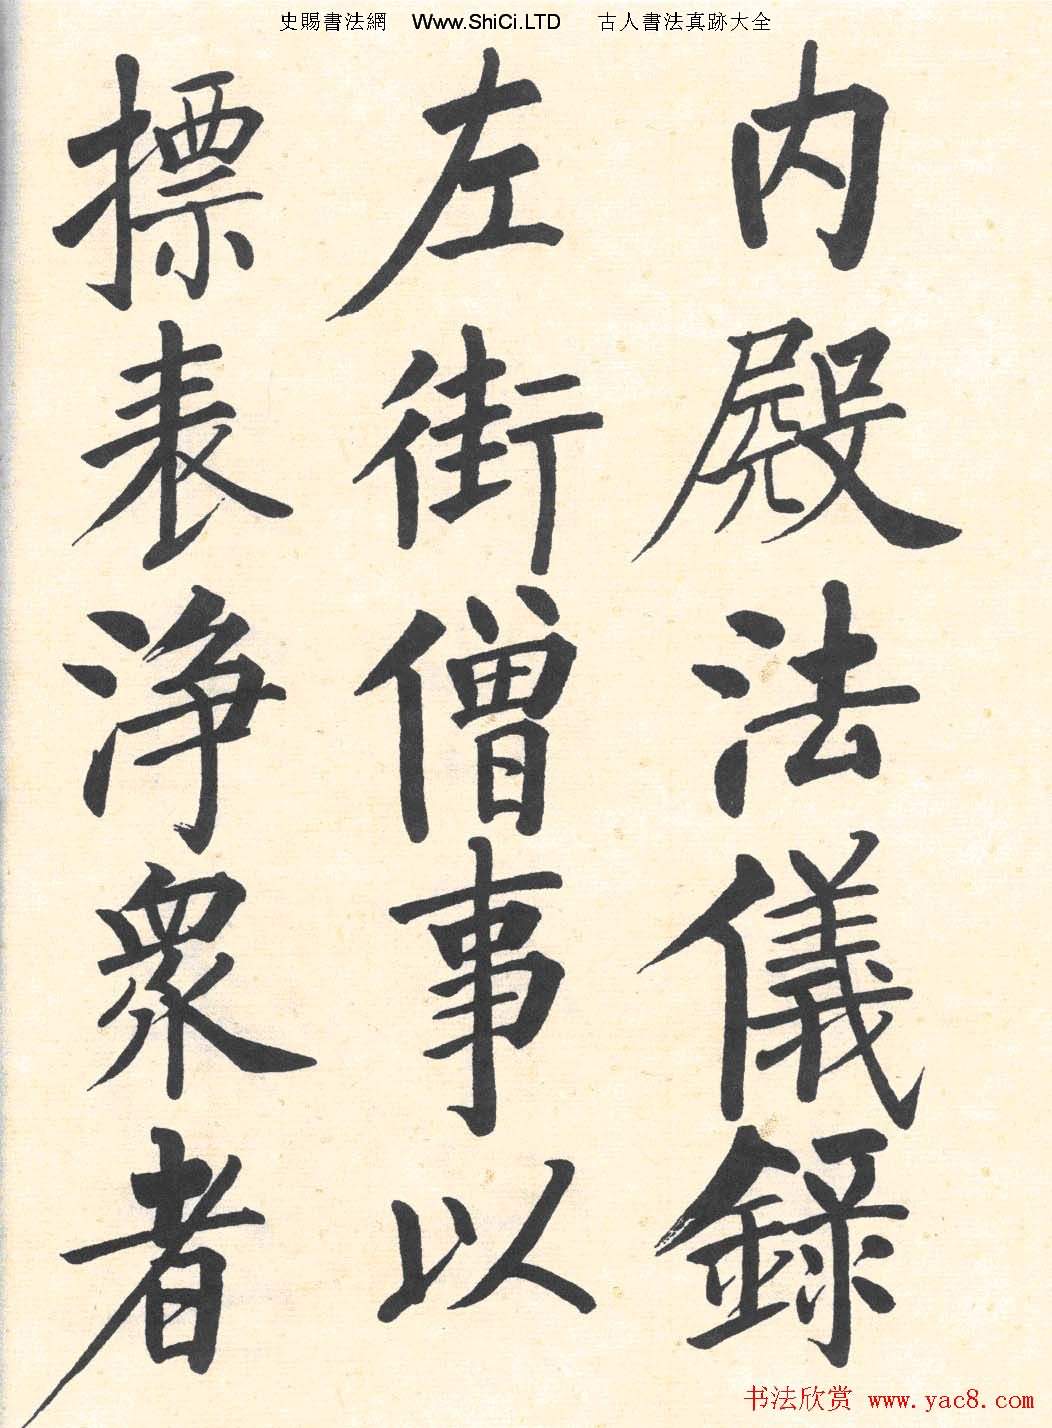 史賜書法網 Www.ShiCi.LTD 古人書法真跡大全
内殿法儀録
左街僧事以
摽表淨衆者
书法欣赏 www.yac8.com